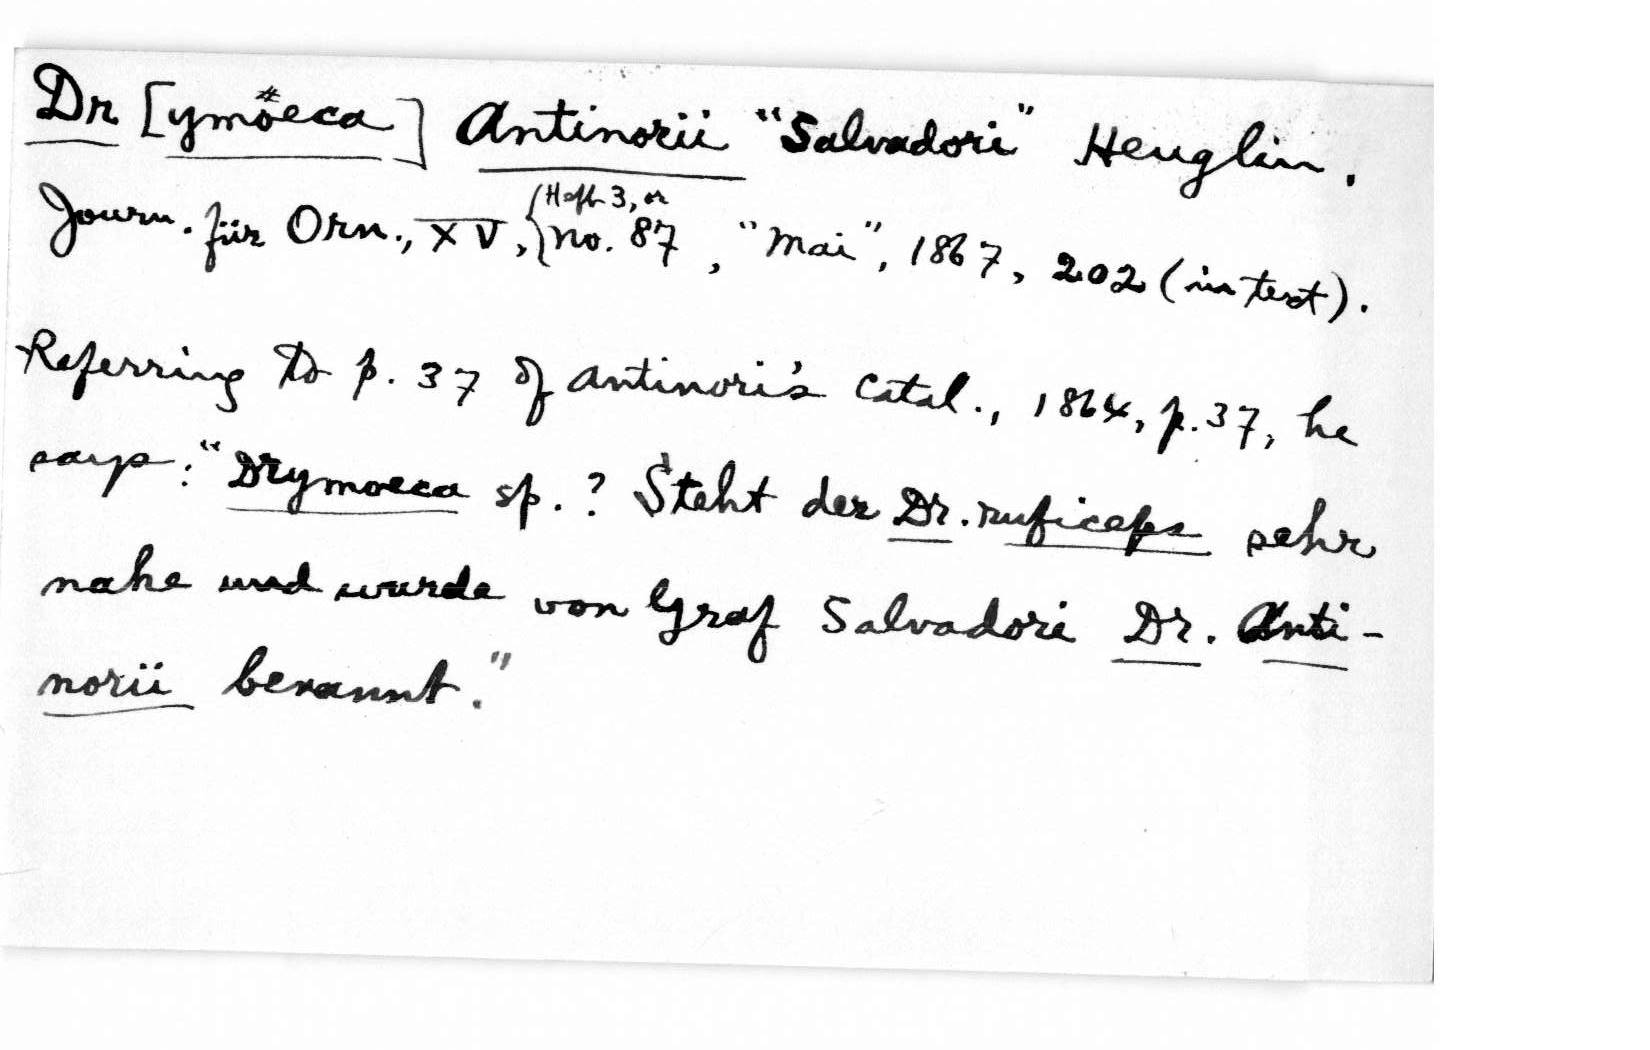 Dr [ymöeca] Antinorii "Salvadori" Heuglin.
Journ. für Orn., XV, {Heft 3, or no. 87, "Mai", 1867, 202 (in text).
Referring to p. 37 of Antinori's Catal., 1864, p. 37, he
says: "Drymoeca sp. ? Steht der Dr. ruficeps sehr
nahe und wurde von Graf Salvadori Dr. Anti-
norii benannt."